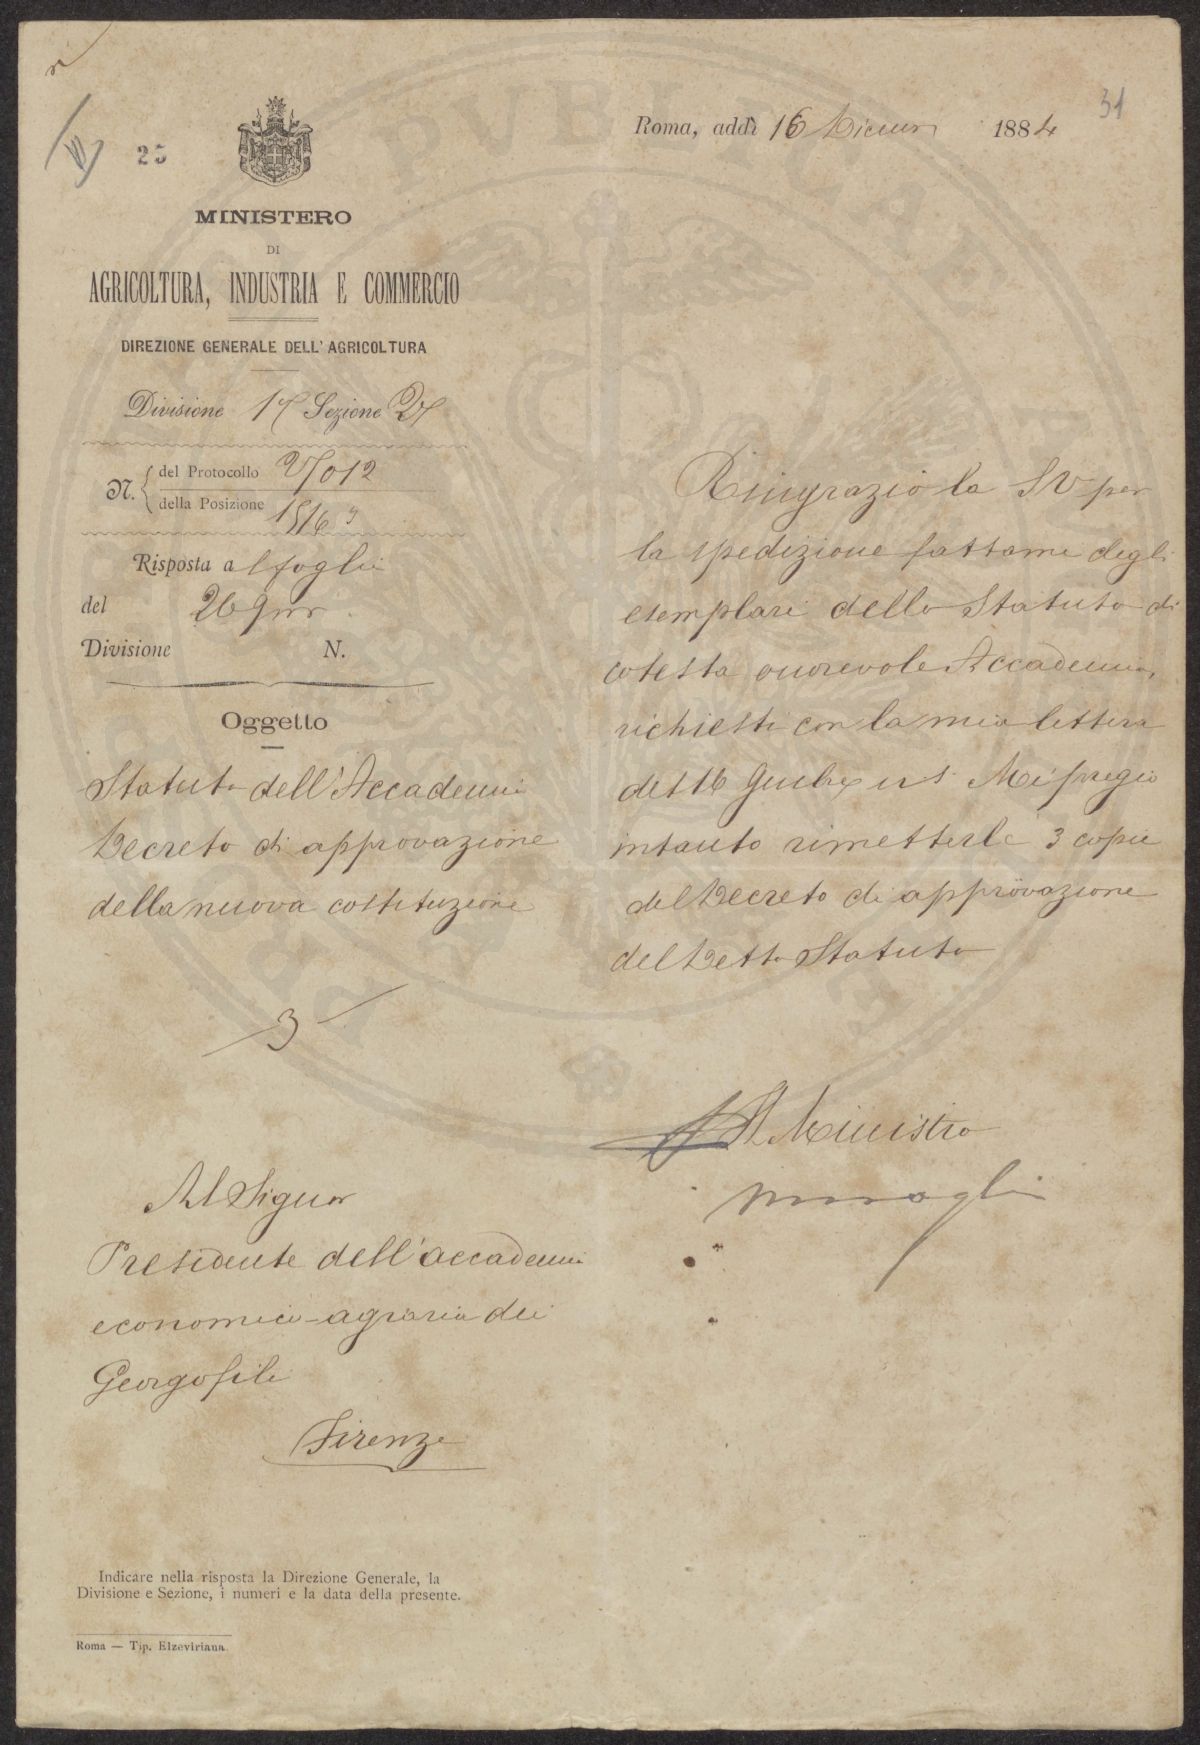 31
25
Roma, addì 16 Dicem 1884
MINISTERO
DI
AGRICOLTURA, INDUSTRIA E COMMERCIO
DIREZIONE GENERALE DELL'AGRICOLTURA
Divisione 1ª Sezione 2ª
N.
del Protocollo
della Posizione
Risposta al foglio
del 26
Divisione N.
Oggetto
Statuto dell'Accademia
Decreto di approvazione
della nuova costituzione
3
Ringrazio la SV per
la spedizione fattami degli
esemplari dello Statuto di
cotesta onorevole Accademia,
richiesti con la mia lettera
del 16 Mi pregio
intanto rimetterle 3 copie
del Decreto di approvazione
del Detto Statuto
Il Ministro
Al Signor
Presidente dell'accademia
economico-agraria dei
Georgofili
Firenze
Indicare nella risposta la Direzione Generale, la
Divisione e Sezione, i numeri e la data della presente.
Roma — Tip. Elzeviriana.